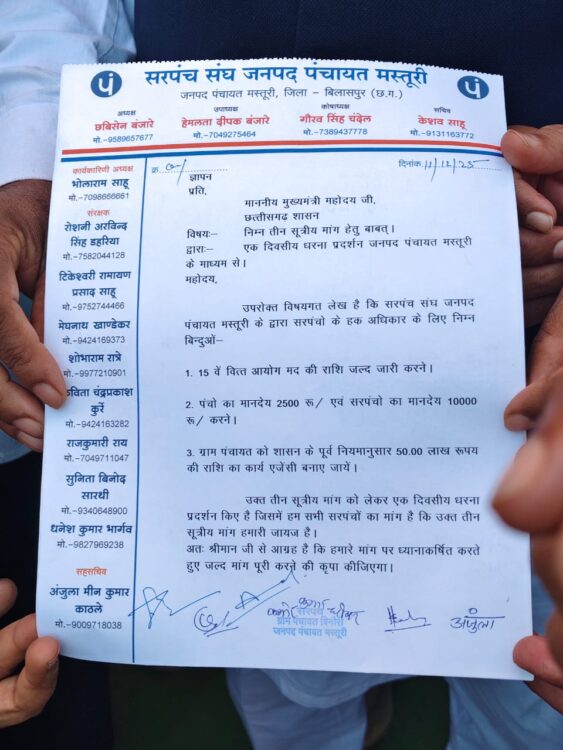 पं
सरपंच संघ जनपद पंचायत मस्तूरी
पं
जनपद पंचायत मस्तूरी, जिला – बिलासपुर (छ.ग.)
अध्यक्ष
छबिसेन बंजारे
मो.-9589657677
उपाध्यक्ष
हेमलता दीपक बंजारे
मो.-7049275464
कोषाध्यक्ष
गौरव सिंह चंदेल
मो.-7389437778
सचिव
केशव साहू
मो.-9131163772
कार्यकारिणी अध्यक्ष
भोलाराम साहू
मो.-7098666661
संरक्षक
रोशनी अरविन्द
सिंह डहरिया
मो.-7582044128
टिकेश्वरी रामायण
प्रसाद साहू
मो.-9752744466
मेघनाथ खाण्डेकर
मो.-9424169373
शोभाराम रात्रे
मो.-9977210901
कविता चंद्रप्रकाश
कुर्रे
मो.-9424163282
राजकुमारी राय
मो.-7049711047
सुनिता बिनोद
सारथी
मो.-9340648900
धनेश कुमार भार्गव
मो.-9827969238
सहसचिव
अंजुला मीन कुमार
काठले
मो.-9009718038
क्र.
दिनांक 11/12/25
ज्ञापन
प्रति,
माननीय मुख्यमंत्री महोदय जी,
छत्तीसगढ़ शासन
विषयः– निम्न तीन सूत्रीय मांग हेतु बाबत्।
द्वाराः– एक दिवसीय धरना प्रदर्शन जनपद पंचायत मस्तूरी
के माध्यम से।
महोदय,
उपरोक्त विषयगत लेख है कि सरपंच संघ जनपद
पंचायत मस्तूरी के द्वारा सरपंचो के हक अधिकार के लिए निम्न
बिन्दुओं–
1. 15 वें वित्त आयोग मद की राशि जल्द जारी करने।
2. पंचो का मानदेय 2500 रू/ एवं सरपंचो का मानदेय 10000
रू/ करने।
3. ग्राम पंचायत को शासन के पूर्व नियमानुसार 50.00 लाख रूपय
की राशि का कार्य एजेंसी बनाए जायें।
उक्त तीन सूत्रीय मांग को लेकर एक दिवसीय धरना
प्रदर्शन किए है जिसमें हम सभी सरपंचों का मांग है कि उक्त तीन
सूत्रीय मांग हमारी जायज है।
अतः श्रीमान जी से आग्रह है कि हमारे मांग पर ध्यानाकर्षित करते
हुए जल्द मांग पूरी करने की कृपा कीजिएगा।
सरपंच
ग्राम पंचायत
जनपद पंचायत मस्तूरी
अंजुला